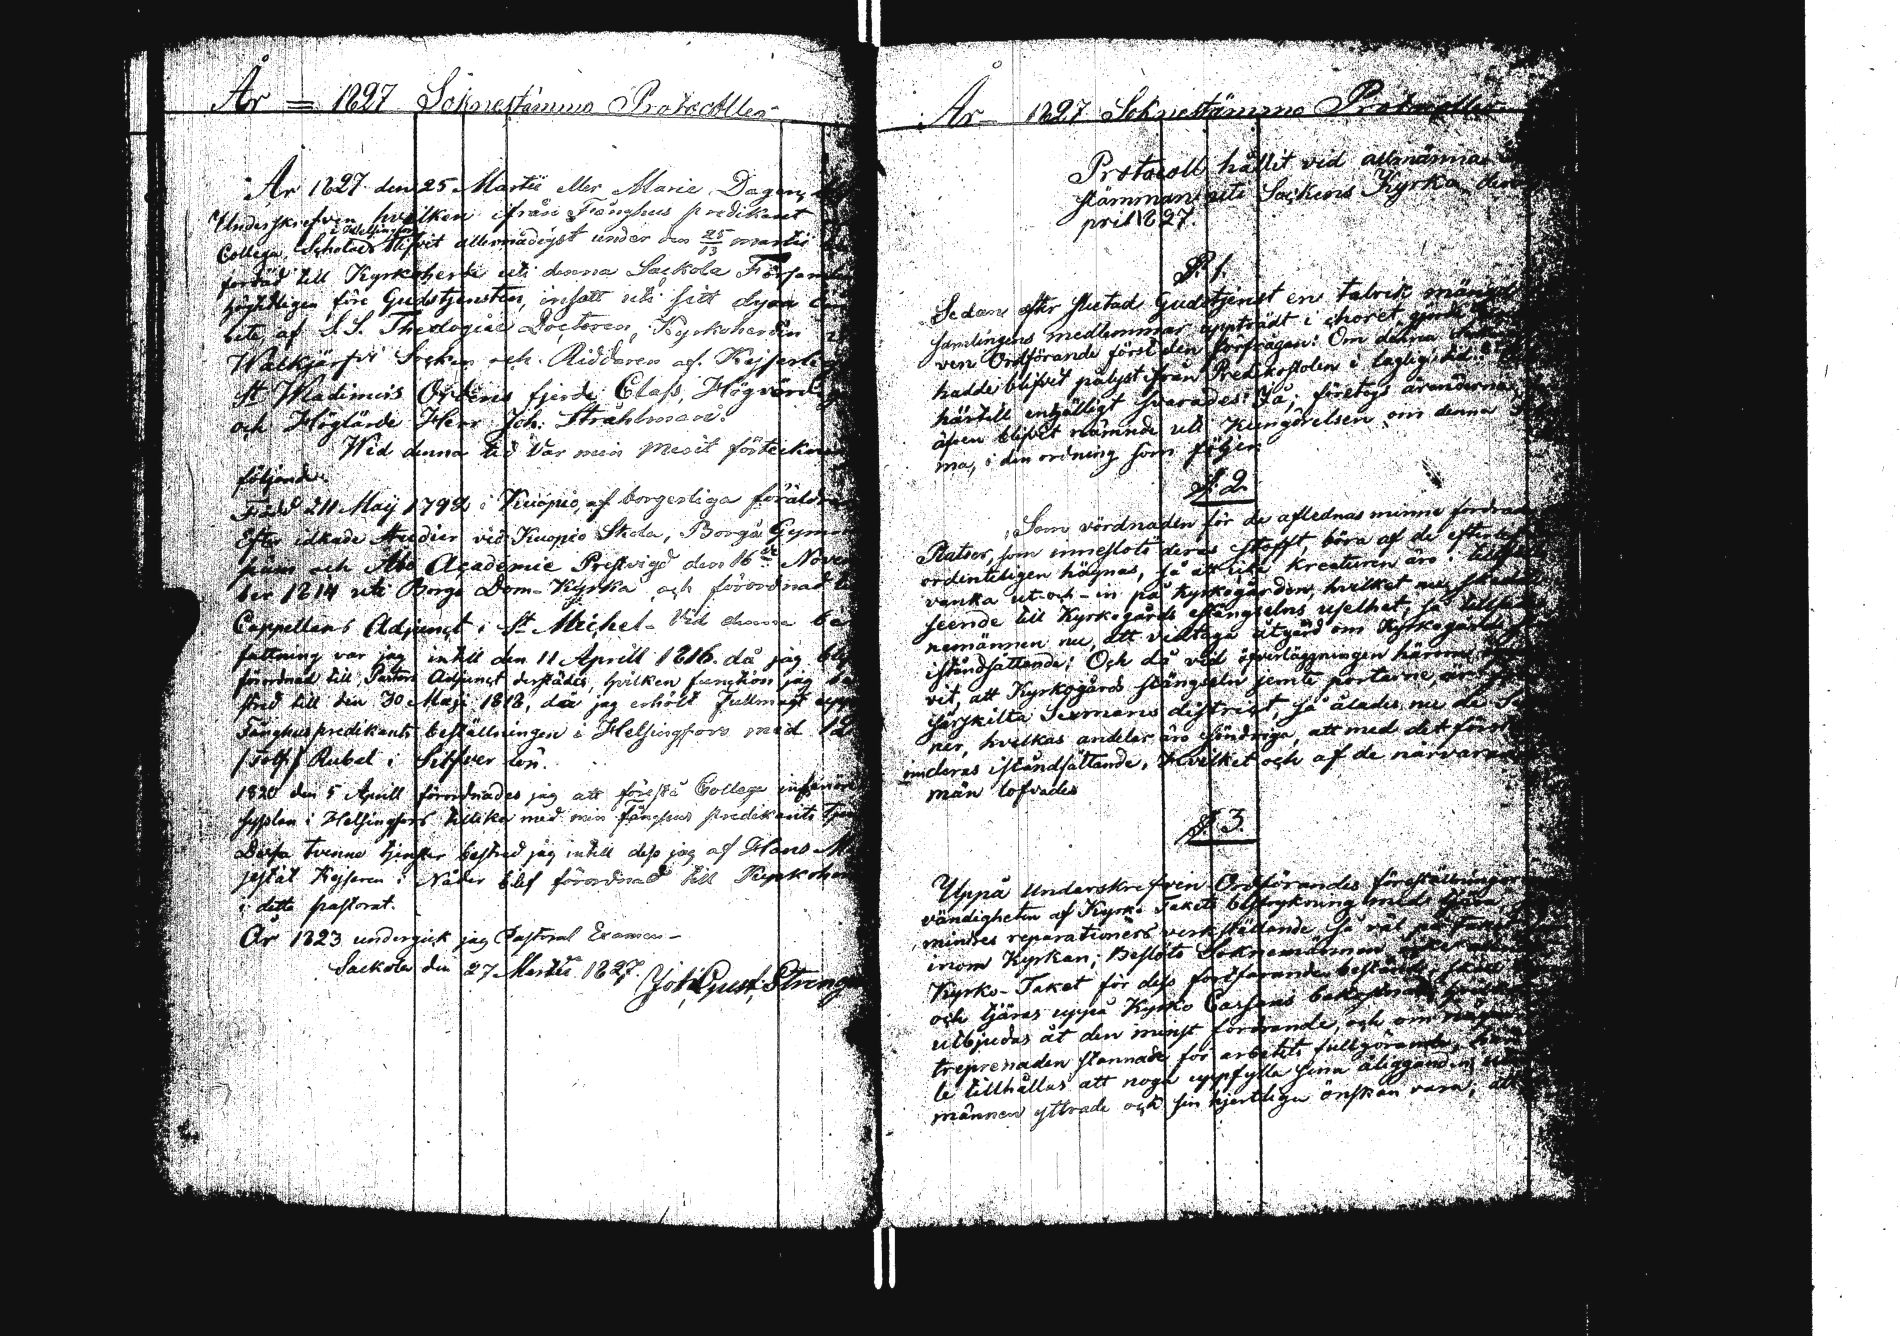 År = 1827 Soknestämmo Protocoller
År 1827 den 25 Martii eller Mariæ Dagen,
Underskrefven hvilken ifrån Fånghus predikant
Collega Scholæ i Helsingfors blifvit allernådigst under den 25/13 martii
fordrad till Kyrkoherde uti denna Sackola Församlin
högtidligen före Gudstjensten, insatt uti sitt dyra Em
bete af S. S. Theologiæ Doctoren, Kyrkoherden i
Walkjärfvi Socken och Riddaren af Kejserliga
St Wladimirs Ordens fjerde Class, Högvördige
och Höglärde Herr Joh: Stråhlman.
Wid denna tid var min Merit förteckning
följande.
Född 24 Maij 1792 i Kuopio, af borgerliga föräldrar
Efter idkade Studier vid Kuopio Skola, Borgå Gymna
sium och Åbo Academie Prestvigd den 16de Novem
ber 1814 uti Borgå Dom-Kyrka och förordnad till
Cappellans Adjunct i St Michel. Vid denna be
fattning var jag intill den 11 Aprill 1816. då jag blef
förordnad till Pastors Adjunct derstädes, hvilken function jag be
stred till den 30 Maji 1818, då jag erhölt Fullmagt uppå
Fånghuspredikants beställningen i Helsingfors med 12
/:tolf:/ Rubel i Silfver lön.
1820 den 5 Aprill förordnades jag att förestå Collega inferiors
sysslan i Helsingfors tillika med min Fånghus predikants tjenst
Dessa tvenne tjenster bestred jag intill dess jag af Hans Ma
jestät Kejsaren i Nåder blef förordnad till Kyrkoherde
i detta pastorat.
År 1823 undergick jag Pastoral Examen –
Sackola den 27 Martii 1827. Joh: Gust: Streng
År 1827 Soknestämmo Protocoller
Protocoll hållit vid allmänna
stämman uti Sackens Kyrka den
pril 1827.
§. 1.
Sedan efter slutad Gudstjenst en talrik mängd
samlingens medlemmar uppträdt i choret gjorde
ven Ordförande först den förfrågan: Om denna
hadde blifvit pålyst från Predikostolen i laglig tid.
härtill enhälligt svarades: Ja; företogs ärenderna,
äfven blifvit nämnde uti Kungörelsen om denna
ma, i den ordning som följer
§. 2.
Som vördnaden för de aflednas minne fordrar
Platser, som inneslote deras stofft, böra af de efterlef
ordenteligen hägnas, så att icke kreaturen äro i tillfälle
vanka ut- och -in på Kyrkogården, hvilket nu skedde
seende till Kyrkogårds stängselns uselhet, så tillsp
nemännen nu, att vidtaga åtgärd om Kyrkogårds
iståndsättande; Och då vid öfverläggningen härom
vit, att Kyrkogårds stängseln jemte portarne, är
särskilta Sexmans district, så ålades nu de So
ner, hvilkas andelar äro söndriga, att med det första
om deras iståndsättande, Hvilket och af de närvarande
män lofvades
§. 3.
Uppå underskrefven Ordförandes föreställningar
vändigheten af Kyrko Takets bestrykning med tjära,
mindre reparationers verkställande, så väl på
inom Kyrkan; Beslöts Soknemännen
Kyrko-Taket för dess fortfarande bestånd, skall
och tjäras uppå Kyrko Cassans bekostnad
utbjudas åt den minst fordrande, och om någon
treprenaden stannade för arbetets fullgörande,
le tillhållas att noga uppfylla sina åligganden;
männen yttrade och sin hjertliga önskan vara, att